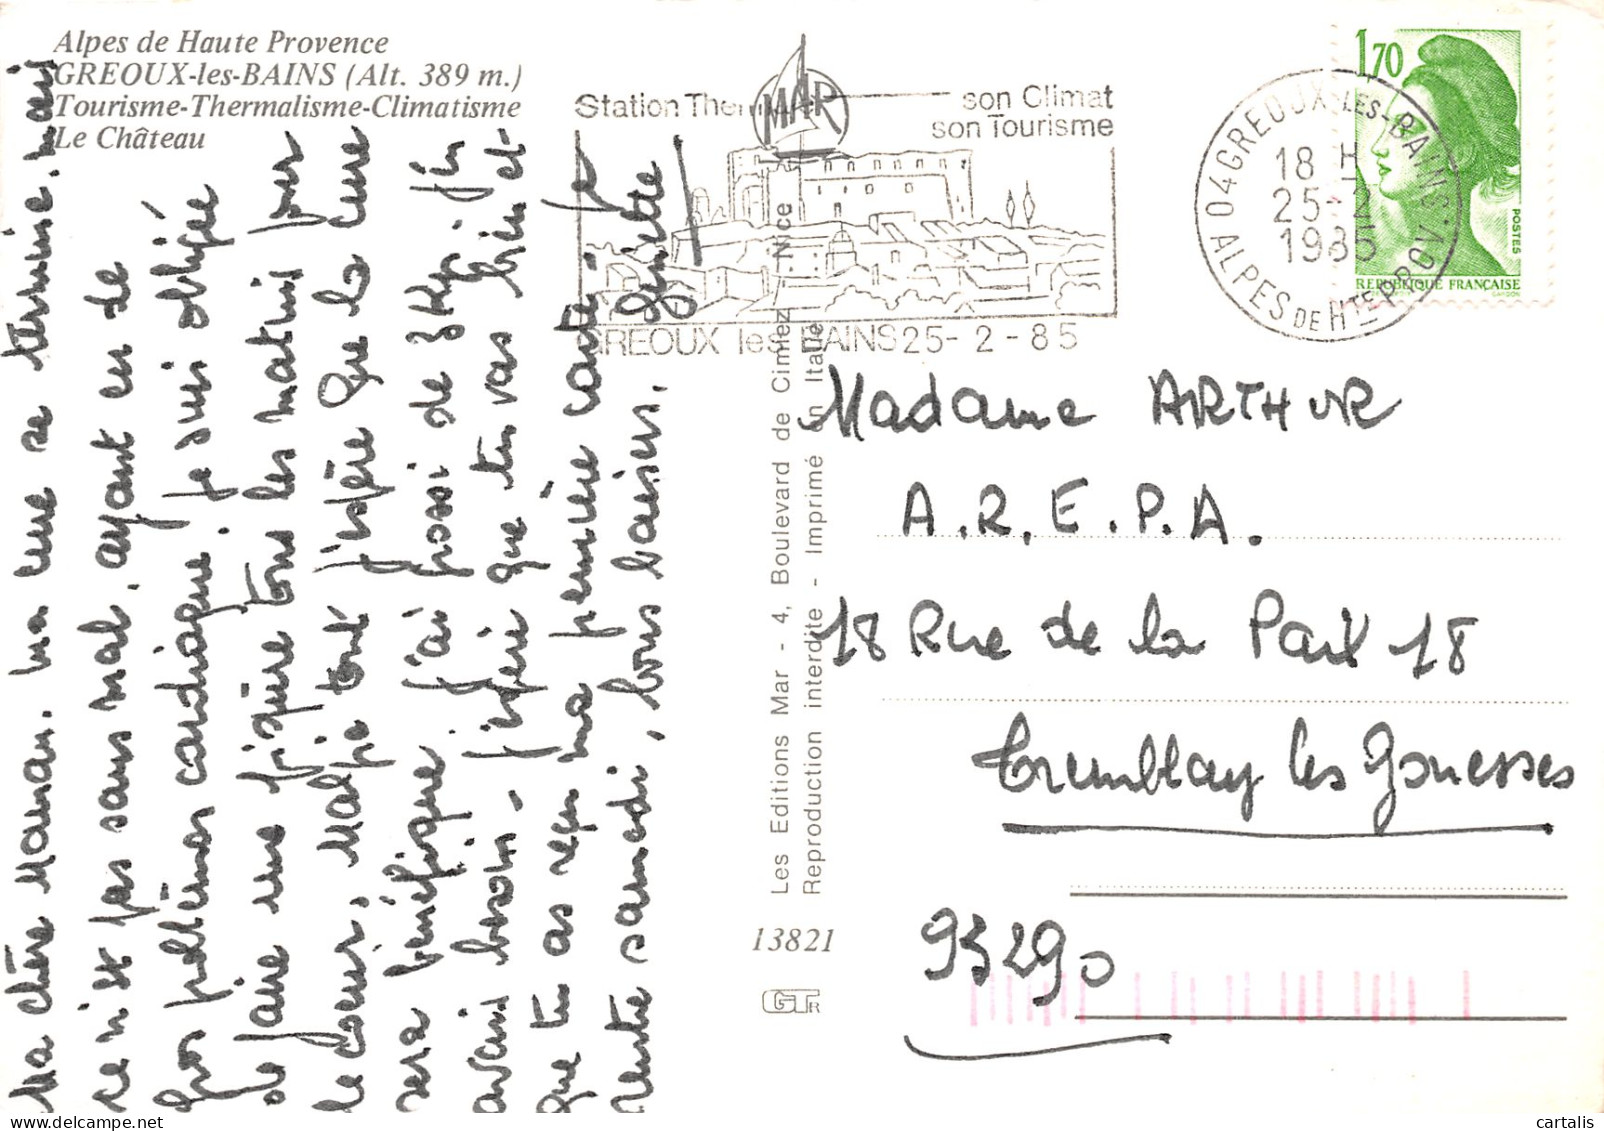 Alpes de Haute Provence
GREOUX-les-BAINS (Alt. 389 m.)
Tourisme-Thermalisme-Climatisme
Le Château
Ma chère Maman. Ma cure se termine, mais
ce n'est pas sans mal, ayant eu de
gros problèmes cardiaques. Je suis obligée
de faire une piqûre tous les matins pour
le coeur, Malgré tout j'espère que la cure
sera bénéfique. j'ai grossi de 3 Kgs. j'en
avais besoin - j'espère que tu vas bien et
que tu as reçu ma première carte - Je
rentre samedi, bons baisers. Ginette
Station Ther
MAR
son Climat
son Tourisme
GREOUX les BAINS 25-2-85
04 GREOUX-LES-BAINS
18 H
25-2
1985
ALPES DE HTE PROV.
1,70
POSTES
REPUBLIQUE FRANÇAISE
GANDON
Les Editions Mar - 4, Boulevard de Cimiez - Nice
Reproduction interdite - Imprimé en Italie
13821
GTR
Madame ARTHUR
A.R.E.P.A.
18 Rue de la Paix 18
Tremblay les Gonesses
93290
cartalis